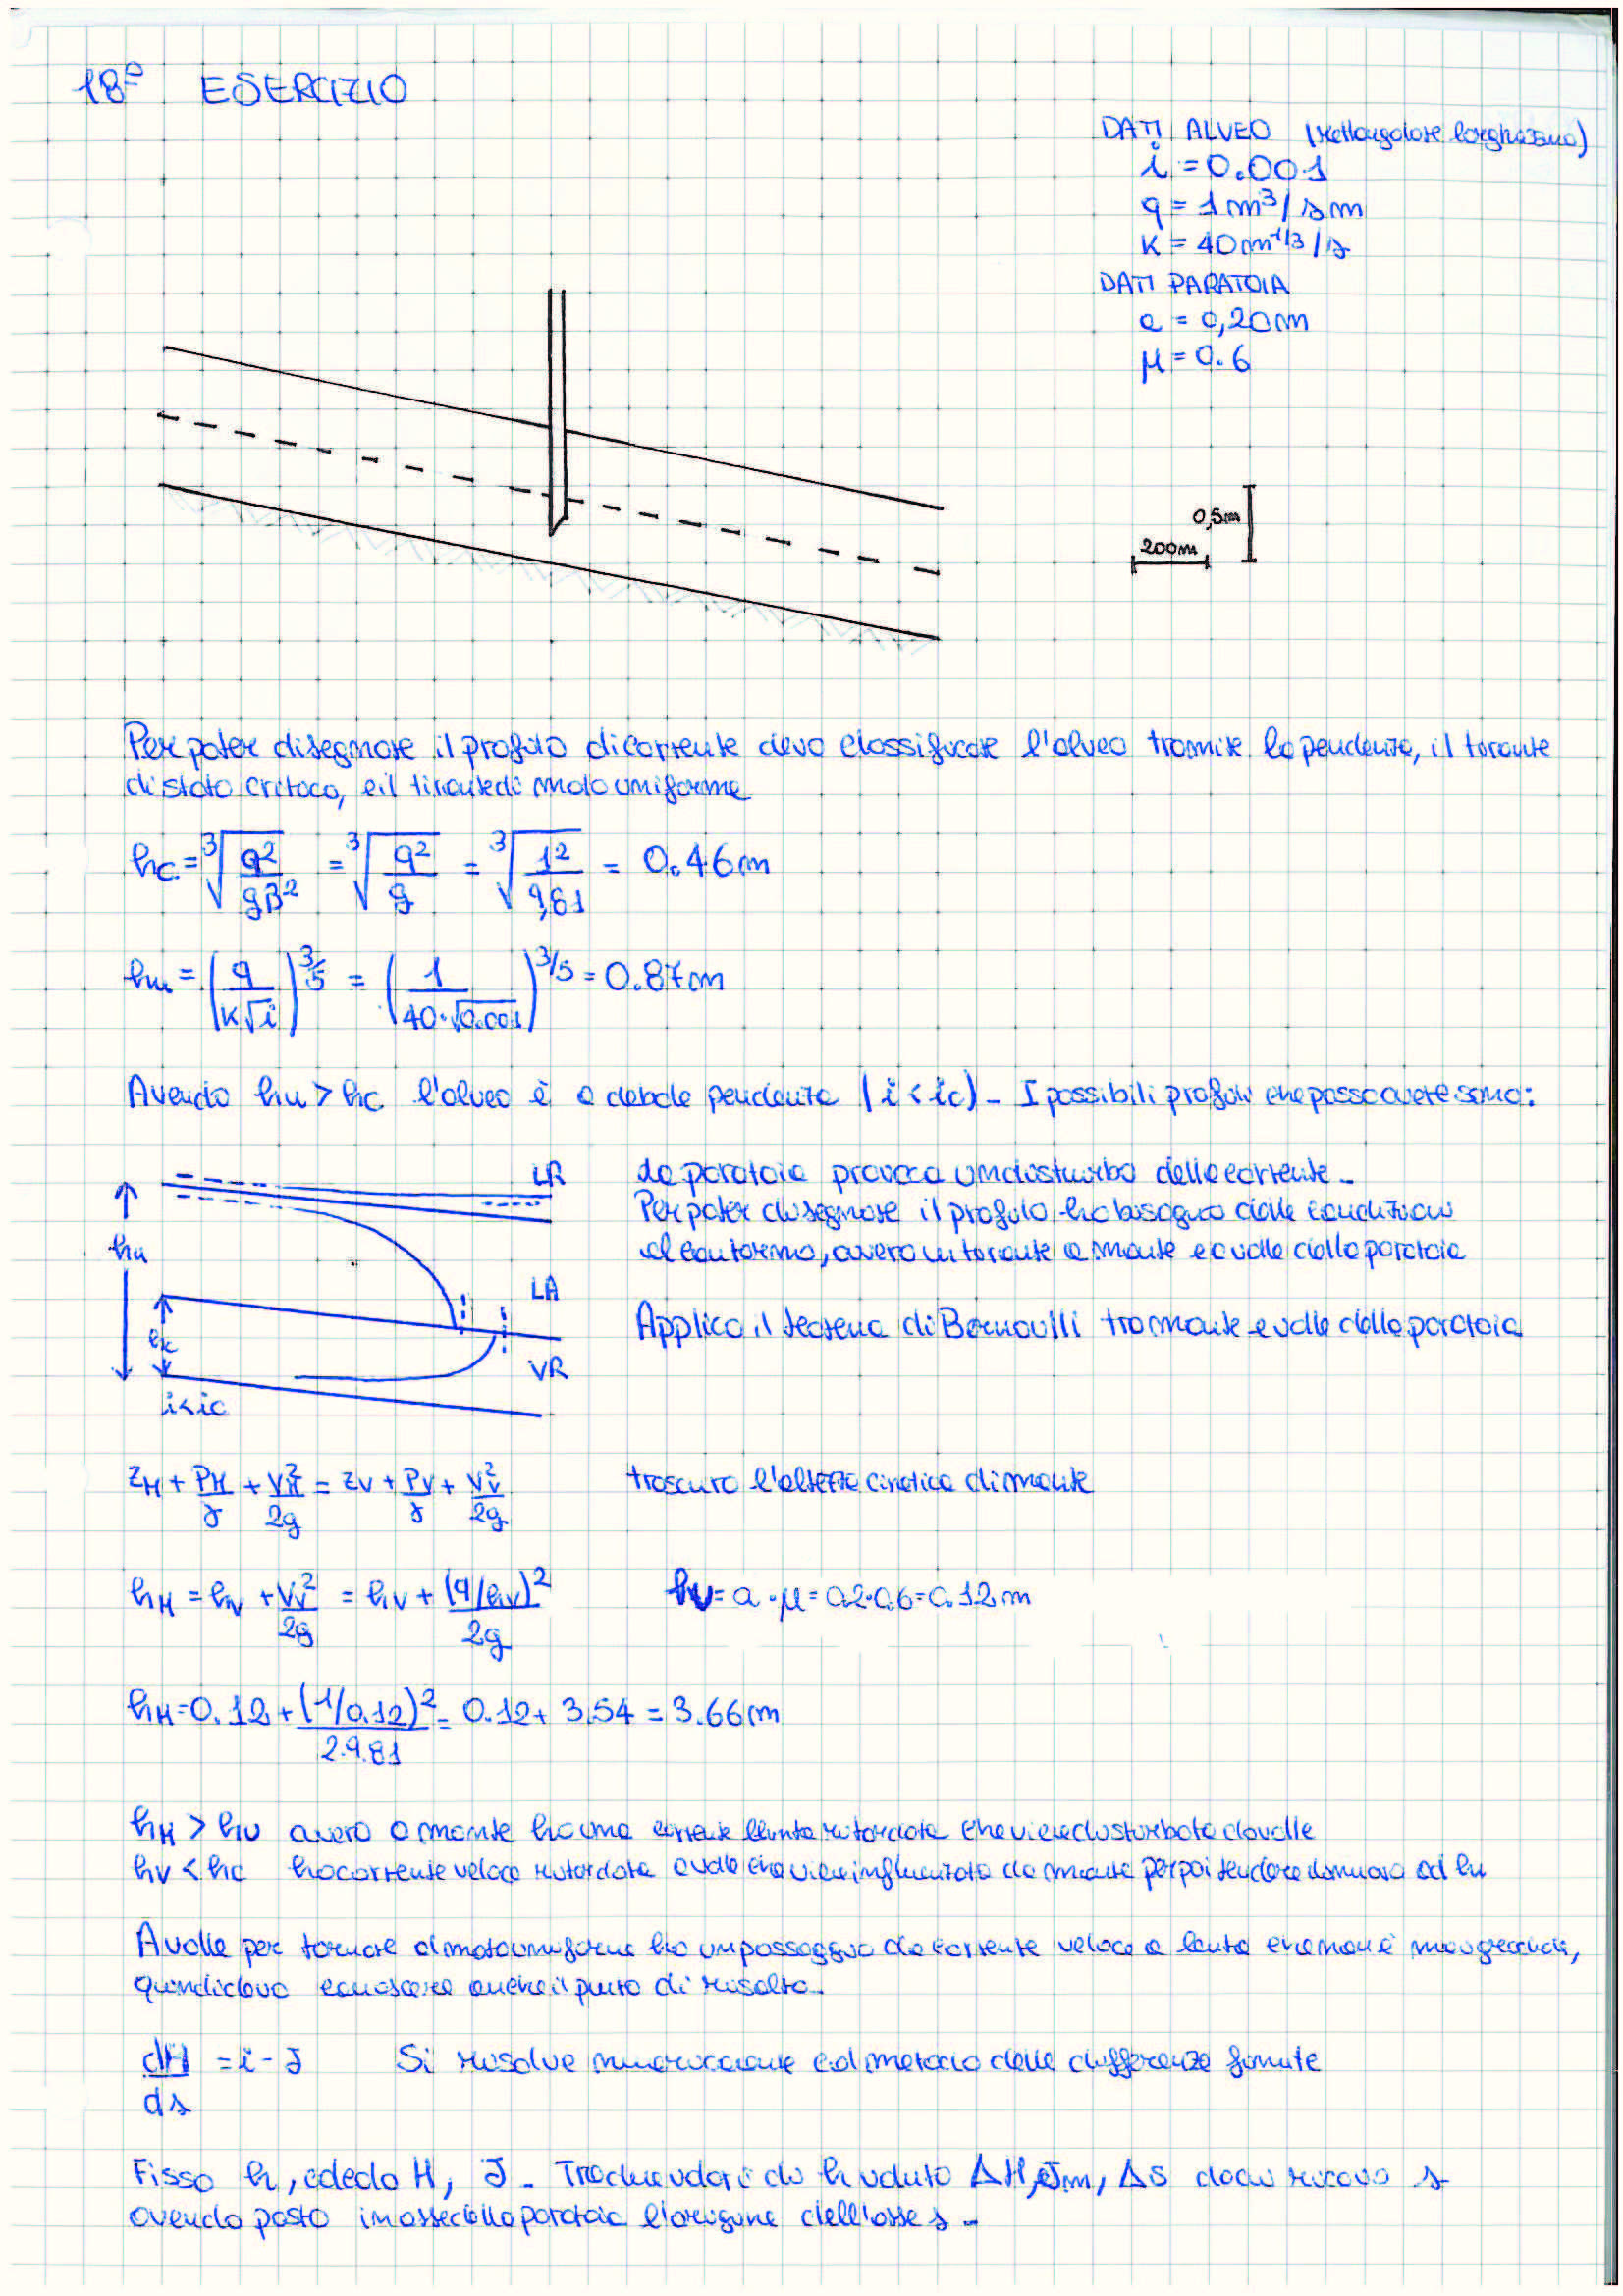 18° ESERCIZIO
DATI ALVEO (rettangolare larghissimo)
i = 0.001
q = 1 m³/s m
K = 40 m^1/3 / s
DATI PARATOIA
a = 0,20 m
μ = 0.6
0,5m
200m
Per poter disegnare il profilo di corrente devo classificare l'alveo tramite la pendenza, il tirante
di stato critico, e il tirante di moto uniforme
hc = ∛(q²/gB²) = ∛(q²/g) = ∛(1²/9,81) = 0.46 m
hu = (q/K√i)^3/5 = (1/40·√0.001)^3/5 = 0.87 m
Avendo hu > hc l'alveo è a debole pendenza (i < ic) - I possibili profili che posso avere sono:
LR
La paratoia provoca un disturbo della corrente -
Per poter disegnare il profilo ho bisogno delle condizioni
hu
al contorno, ovvero un tirante a monte e a valle della paratoia
LA
Applico il teorema di Bernoulli tra monte e valle della paratoia
VR
i<ic
zM + PM/γ + VM²/2g = zV + PV/γ + VV²/2g trascuro l'altezza cinetica di monte
hM = hV + VV²/2g = hV + (q/hV)²/2g hV = a·μ = 0.2·0.6 = 0.12 m
hM = 0.12 + (1/0.12)²/2·9.81 = 0.12 + 3.54 = 3.66 m
hM > hu ovvero a monte ho una corrente lenta ritardata che viene disturbata da valle
hV < hc ho corrente veloce ritardata a valle che viene influenzata da monte per poi tendere di nuovo ad hu
A valle per tornare al moto uniforme ho un passaggio da corrente veloce a lenta che non è mai graduale,
quindi devo conoscere anche il punto di risalto.
dH/ds = i - J Si risolve numericamente col metodo delle differenze finite
Fisso h, calcolo H, J - Tra due valori di h valuto ΔH, Jm, Δs da cui ricavo s
avendo posto in asse della paratoia l'origine dell'asse s -